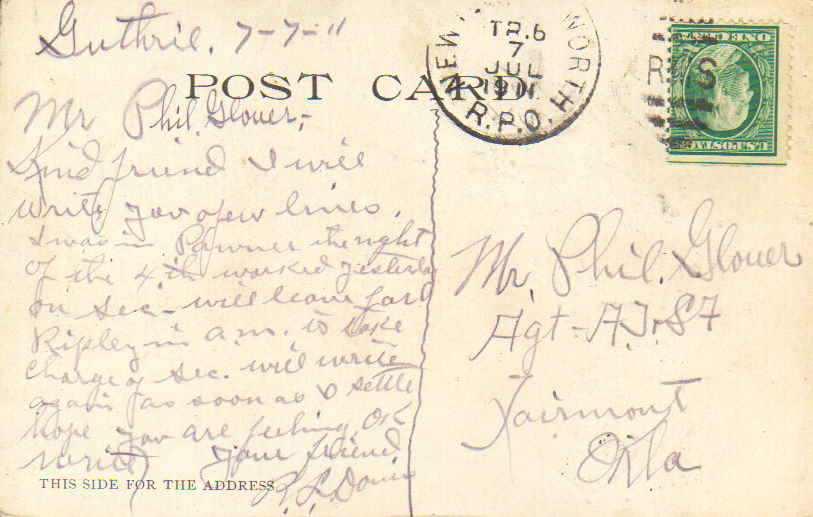 Guthrie. 7-7-11
POST CARD
Mr Phil. Glover,-
Kind friend I will
write you a few lines.
I was in Pawnee the night
of the 4th worked yesterda
on sec- will leave for
Ripley in a.m. to take
charge of sec. will write
again as soon as I settle
hope you are feeling OK
write Your friend
R. L. Davis
THIS SIDE FOR THE ADDRESS
NEW WORTH
TR.6
7
JUL
1911
R.P.O.
RMS
ONE CENT
U.S. POSTAGE
Mr. Phil. Glover
Agt - A.T.&S.F
Fairmont
Okla